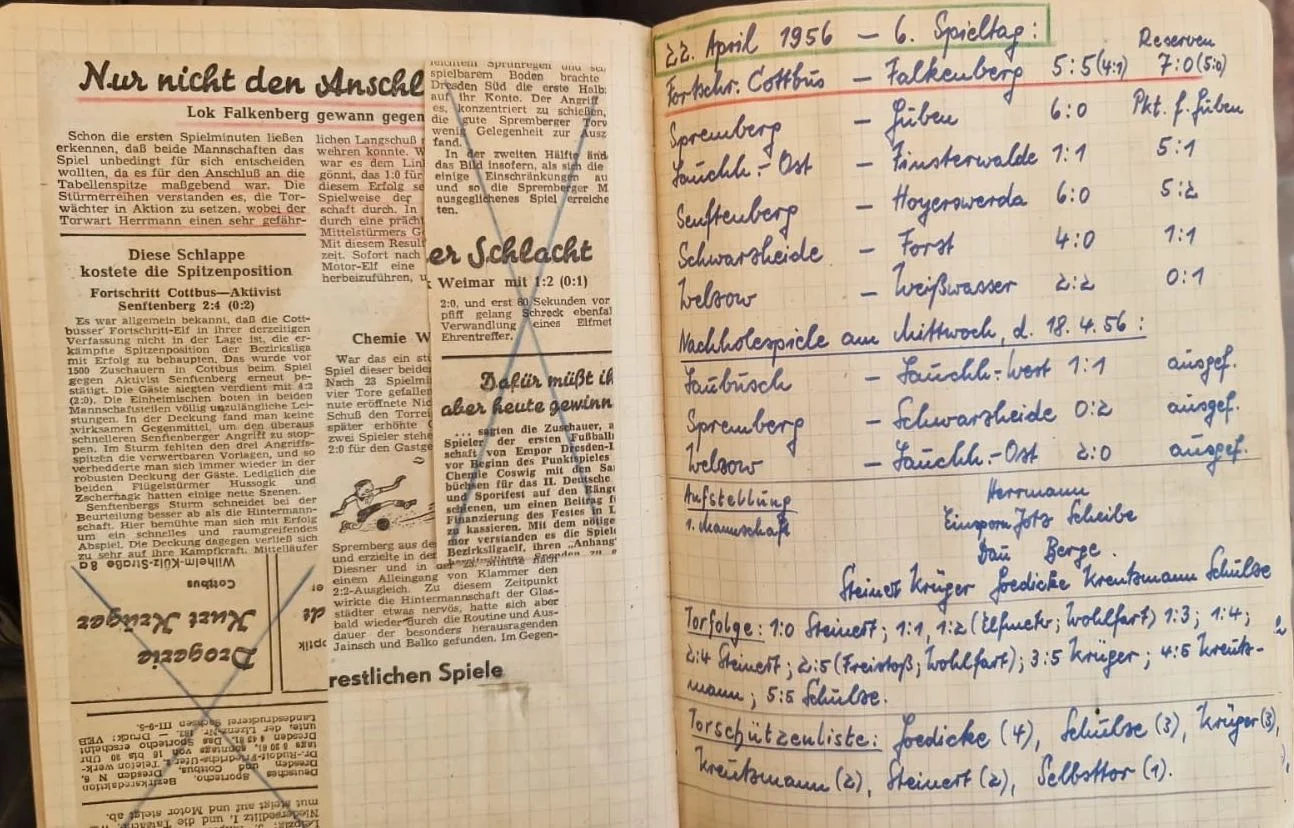 Nur nicht den Anschl
Lok Falkenberg gewann gegen
Schon die ersten Spielminuten ließen
erkennen, daß beide Mannschaften das
Spiel unbedingt für sich entscheiden
wollten, da es für den Anschluß an die
Tabellenspitze maßgebend war. Die
Stürmerreihen verstanden es, die Tor-
wächter in Aktion zu setzen, wobei der
Torwart Herrmann einen sehr gefähr-
lichen Langschuß
wehren konnte. W
war es dem Lin
gönnt, das 1:0 für
diesem Erfolg se
Spielweise der
schaft durch. In
durch eine prächt
Mittelstürmers G
Mit diesem Result
zeit. Sofort nach
Motor-Elf eine
herbeizuführen, u
Diese Schlappe
kostete die Spitzenposition
Fortschritt Cottbus—Aktivist
Senftenberg 2:4 (0:2)
Es war allgemein bekannt, daß die Cott-
busser Fortschritt-Elf in ihrer derzeitigen
Verfassung nicht in der Lage ist, die er-
kämpfte Spitzenposition der Bezirksliga
mit Erfolg zu behaupten. Das wurde vor
1500 Zuschauern in Cottbus beim Spiel
gegen Aktivist Senftenberg erneut be-
stätigt. Die Gäste siegten verdient mit 4:2
(2:0). Die Einheimischen boten in beiden
Mannschaftsteilen völlig unzulängliche Lei-
stungen. In der Deckung fand man keine
wirksamen Gegenmittel, um den überaus
schnelleren Senftenberger Angriff zu stop-
pen. Im Sturm fehlten den drei Angriffs-
spitzen die verwertbaren Vorlagen, und so
verhedderte man sich immer wieder in der
robusten Deckung der Gäste. Lediglich die
beiden Flügelstürmer Hussogk und
Zschernagk hatten einige nette Szenen.
Senftenbergs Sturm schneidet bei der
Beurteilung besser ab als die Hintermann-
schaft. Hier bemühte man sich mit Erfolg
um ein schnelles und raumgreifendes
Abspiel. Die Deckung dagegen verließ sich
zu sehr auf ihre Kampfkraft. Mittelläufer
Chemie W
War das ein st
Spiel dieser beider
Nach 23 Spielmi
vier Tore gefallen
nute eröffnete Nic
Schuß den Torrei
später erhöhte
zwei Spieler stehe
2:0 für den Gastge
Spremberg aus de
und erzielte in der
Diesner und in der 23. Minute nach
einem Alleingang von Klammer den
2:2-Ausgleich. Zu diesem Zeitpunkt
wirkte die Hintermannschaft der Glas-
städter etwas nervös, hatte sich aber
bald wieder durch die Routine und Aus-
dauer der besonders herausragenden
Jainsch und Balko gefunden. Im Gegen-
restlichen Spiele
leichtem Sprühregen und
spielbarem Boden brachte
Dresden Süd die erste Halb
auf ihr Konto. Der Angriff
es, konzentriert zu schießen,
die gute Spremberger Torv
wenig Gelegenheit zur Ausz
fand.
In der zweiten Hälfte änd
das Bild insofern, als sich die
einige Einschränkungen au
und so die Spremberger M
ausgeglichenes Spiel erreiche
ten.
er Schlacht
Weimar mit 1:2 (0:1)
2:0, und erst 60 Sekunden vor
pfiff gelang Schreck ebenfal
Verwandlung eines Elfmet
Ehrentreffer.
Dafür müßt ih
aber heute gewinn
... sagten die Zuschauer, a
Spieler der ersten Fußballm
schaft von Empor Dresden-L
vor Beginn des Punktspieles
Chemie Coswig mit den Sa
büchsen für das II. Deutsche
und Sportfest auf den Räng
schienen, um einen Beitrag f
Finanzierung des Festes in L
zu kassieren. Mit dem nötige
mor verstanden es die Spiel
Bezirksligaelf, ihren „Anhang
Drogerie
Kurt Krüger
Cottbus
Wilhelm-Külz-Straße 8a
Deutsches Sportecho, Bezirksredaktion
Dresden und Cottbus, Dresden N 6,
Dr.-Rudolf-Friedrichs-Ufer 2, Telefon werk-
tags 5 30 61, sonntags von 16 bis 20 Uhr
Dresden 4 45 81. Das Sportecho erscheint
unter der Lizenz-Nr. 132. — Druck: VEB
Landesdruckerei Sachsen III-9-5.
Niedersedlitz I, und die Tatsache,
mut steigt auf und Motor steigt ab.
22. April 1956 — 6. Spieltag:
Reserven
Fortschr. Cottbus — Falkenberg 5:5 (4:1) 7:0 (5:0)
Spremberg — Guben 6:0 Pkt. f. Guben
Lauchh.-Ost — Finsterwalde 1:1 5:1
Senftenberg — Hoyerswerda 6:0 5:2
Schwarzheide — Forst 4:0 1:1
Welzow — Weißwasser 2:2 0:1
Nachholespiele am Mittwoch, d. 18.4.56:
Laubusch — Lauchh.-West 1:1 ausgef.
Spremberg — Schwarzheide 0:2 ausgef.
Welzow — Lauchh.-Ost 2:0 ausgef.
Aufstellung Herrmann
1. Mannschaft Einsporn Jotz Scheibe
Dau Berge
Steinert Krüger Goedicke Kreutzmann Schulze
Torfolge: 1:0 Steinert; 1:1, 1:2 (Elfmetr; Wohlfart) 1:3; 1:4;
2:4 Steinert; 2:5 (Freistoß; Wohlfart); 3:5 Krüger; 4:5 Kreutz-
mann; 5:5 Schulze.
Torschützenliste: Goedicke (4), Schulze (3), Krüger (3),
Kreutzmann (2), Steinert (2), Selbsttor (1).